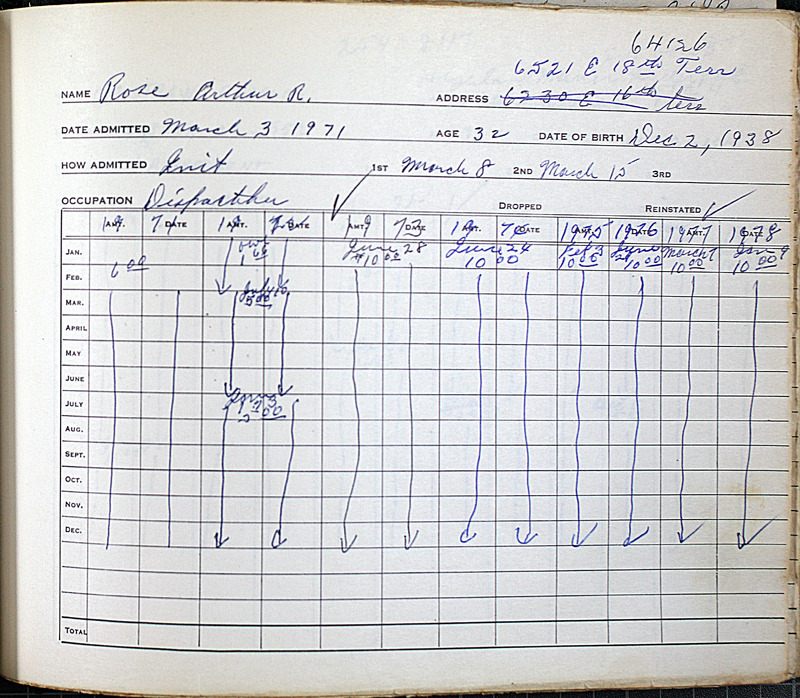 64126
6521 E 18th Terr
NAME Rose Arthur R. ADDRESS 6230 E 16th terr
DATE ADMITTED March 3 1971 AGE 32 DATE OF BIRTH Dec 2, 1938
HOW ADMITTED Init 1ST March 8 2ND March 15 3RD
OCCUPATION Dispatcher DROPPED REINSTATED
19 AMT. 71 DATE 19 AMT. DATE 19 AMT 73 DATE 19 AMT. DATE 1975 AMT. 1976 DATE 1977 AMT. 1978 DATE
JAN. June 28 June 24 Feb 3 June 21 March 7 Jan 9
10 00 10 00 10 00 10 00 10 00 10 00
FEB. 6 00
July 16
5 00
MAR.
APRIL
MAY
JUNE
JULY
5 00
AUG.
SEPT.
OCT.
NOV.
DEC.
TOTAL